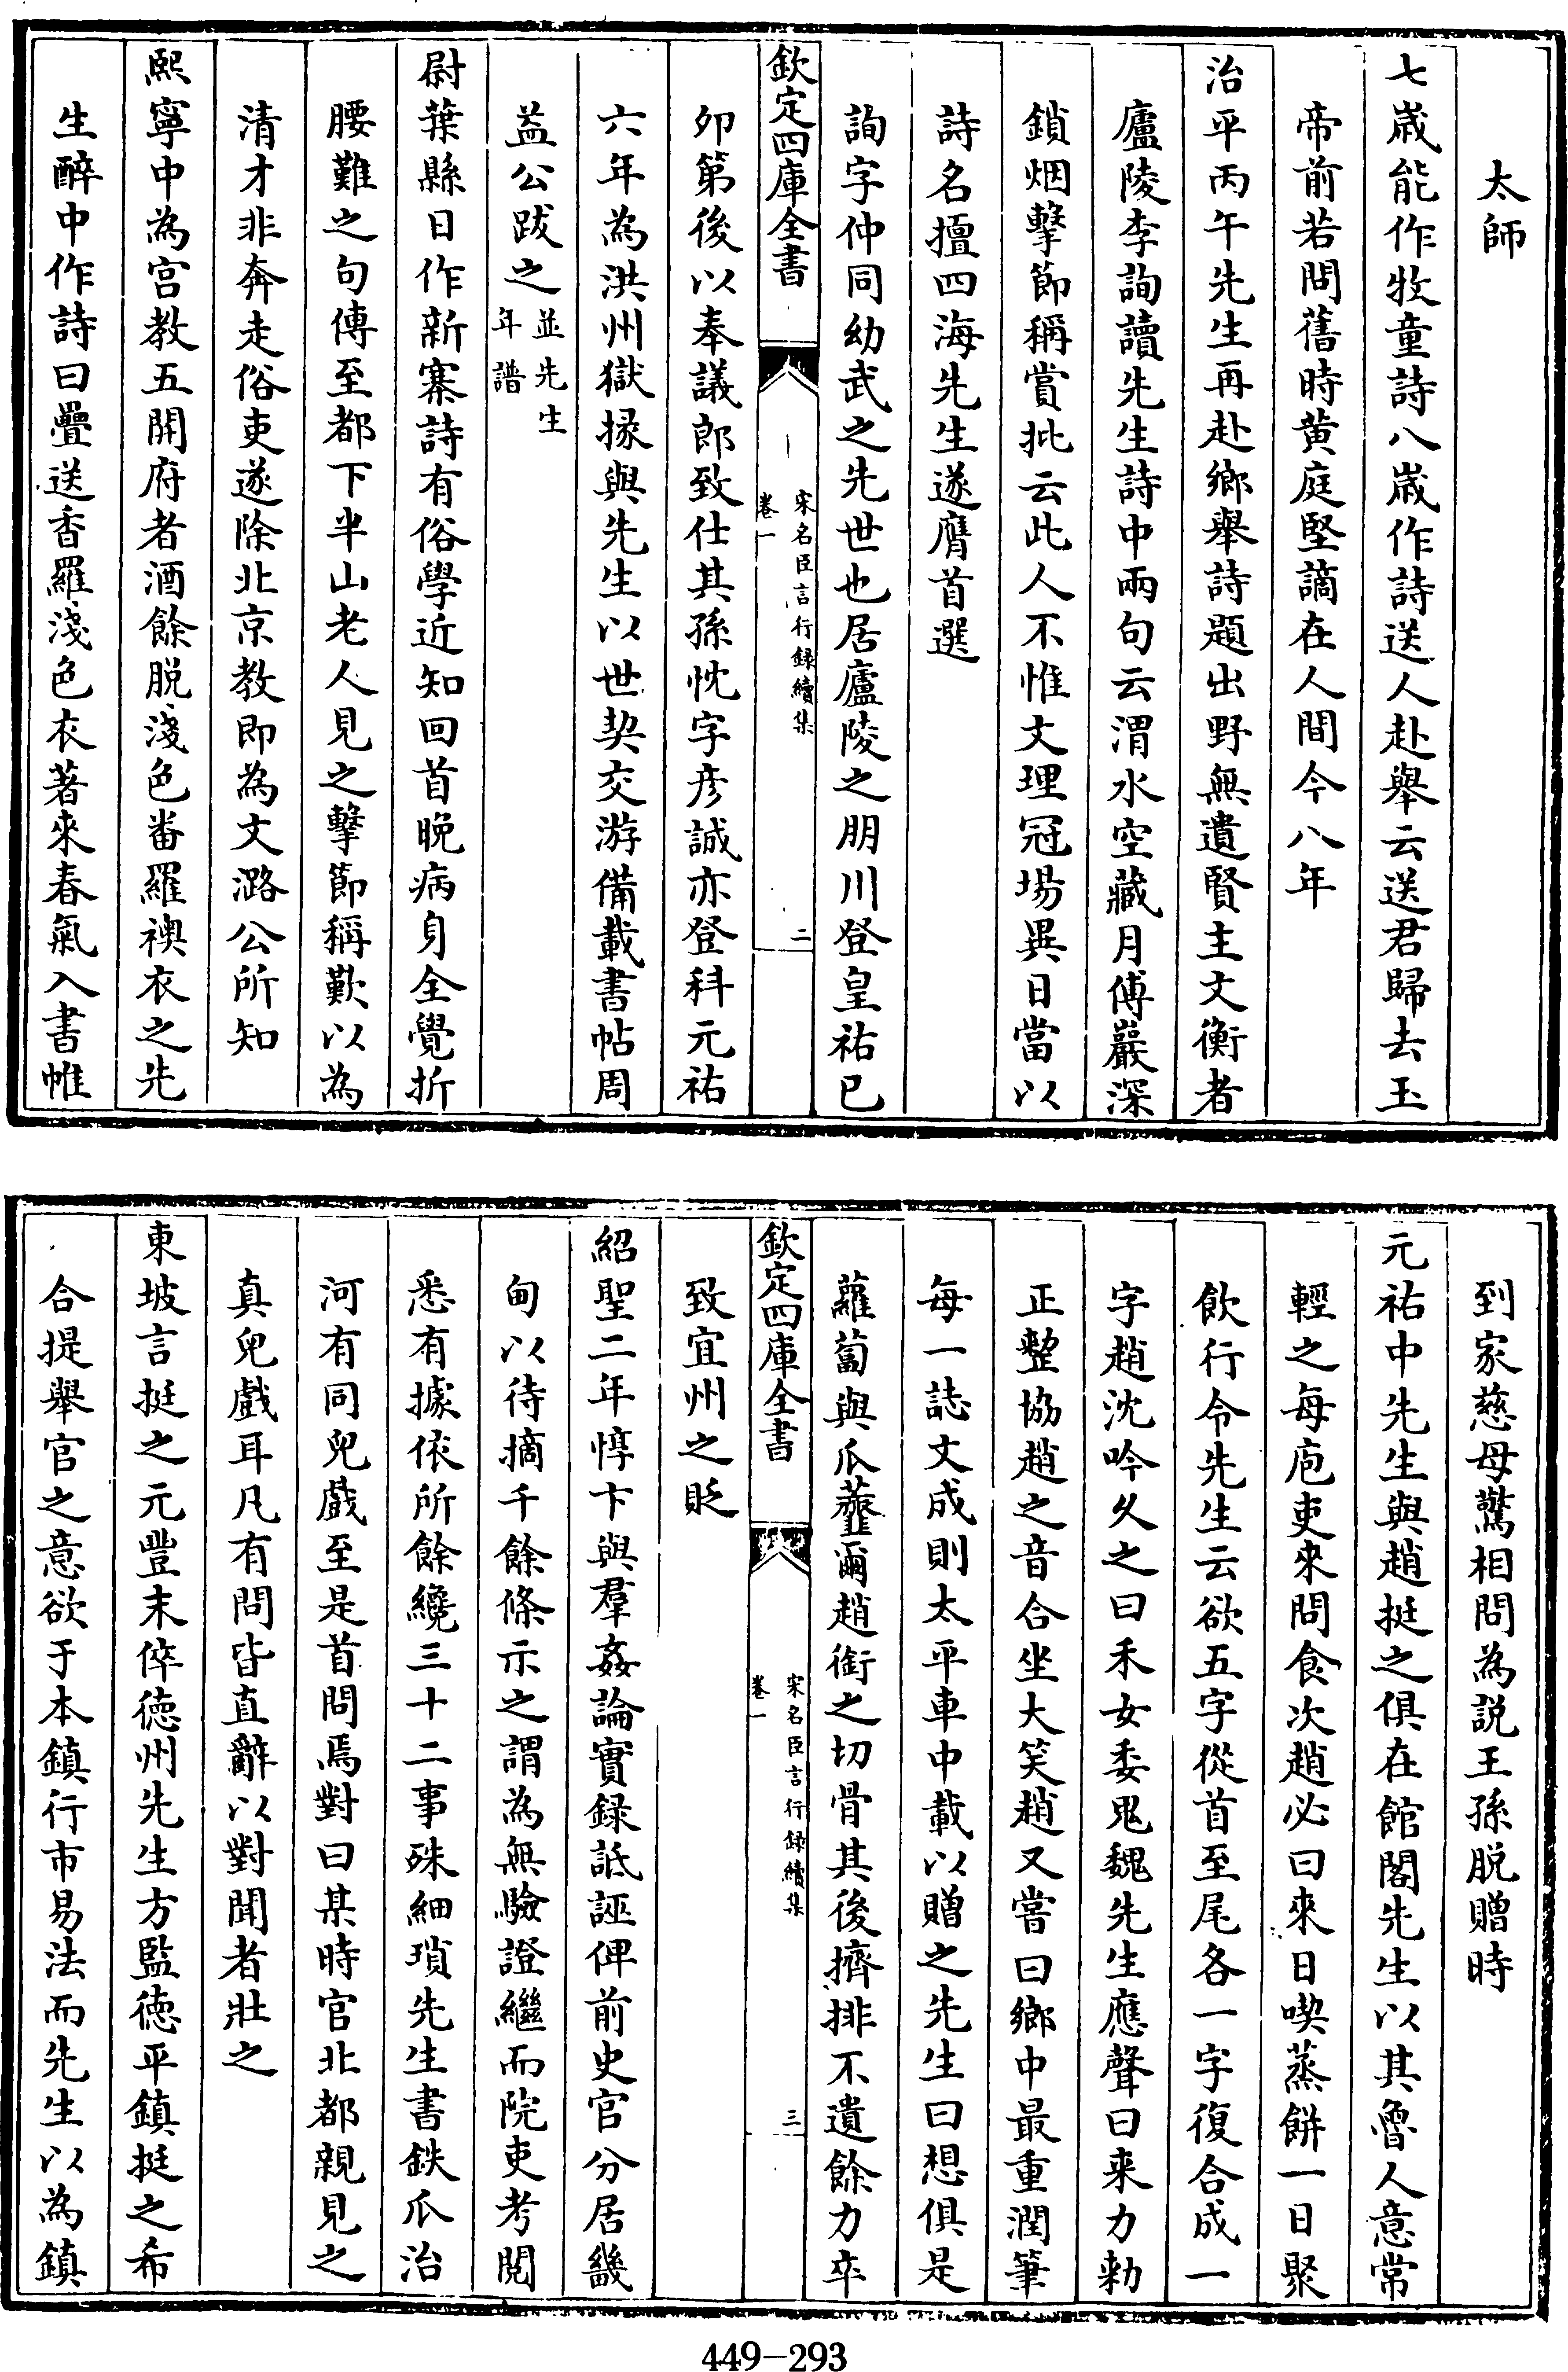 太師
七嵗能作牧童詩八嵗作詩送人赴舉云送君歸去玉
帝前若問舊時黄庭堅謫在人間今八年
治平丙午先生再赴鄉舉詩題出野無遺賢主文衡者
廬陵李詢讀先生詩中兩句云渭水空藏月傅巖深
鎖烟擊節稱賞批云此人不惟文理冠場異日當以
詩名擅四海先生遂膺首選
詢字仲同幼武之先世也居廬陵之朋川登皇祐已
欽定四庫全書
宋名臣言行録續集
卷一
二
卯第後以奉議郎致仕其孫忱字彦誠亦登科元祐
六年為洪州獄掾與先生以世契交游備載書帖周
益公跋之並先生
年譜
尉葉縣日作新寨詩有俗學近知回首晚病身全覺折
腰難之句傳至都下半山老人見之擊節稱歎以為
清才非奔走俗吏遂除北京教即為文潞公所知
熙寧中為宫教五開府者酒餘脱淺色番羅襖衣之先
生醉中作詩曰疊送香羅淺色衣著來春氣入書帷
到家慈母驚相問為説王孫脱贈時
元祐中先生與趙挺之俱在館閣先生以其魯人意常
輕之每庖吏來問食次趙必曰來日喫蒸餅一日聚
飲行令先生云欲五字從首至尾各一字復合成一
字趙沈吟久之曰禾女委鬼魏先生應聲曰来力勑
正整協趙之音合坐大笑趙又嘗曰鄉中最重潤筆
每一誌文成則太平車中載以贈之先生曰想俱是
蘿蔔與瓜虀爾趙銜之切骨其後擠排不遺餘力卒
欽定四庫全書
宋名臣言行録續集
卷一
三
致宜州之貶
紹聖二年惇卞與羣姦論實録詆誣俾前史官分居畿
甸以待摘千餘條示之謂為無驗證繼而院吏考閱
悉有據依所餘纔三十二事殊細瑣先生書鉄爪治
河有同兒戲至是首問焉對曰某時官北都親見之
真兒戲耳凡有問皆直辭以對聞者壯之
東坡言挺之元豐末倅徳州先生方監徳平鎮挺之希
合提舉官之意欲于本鎮行市易法而先生以為鎮
449-293